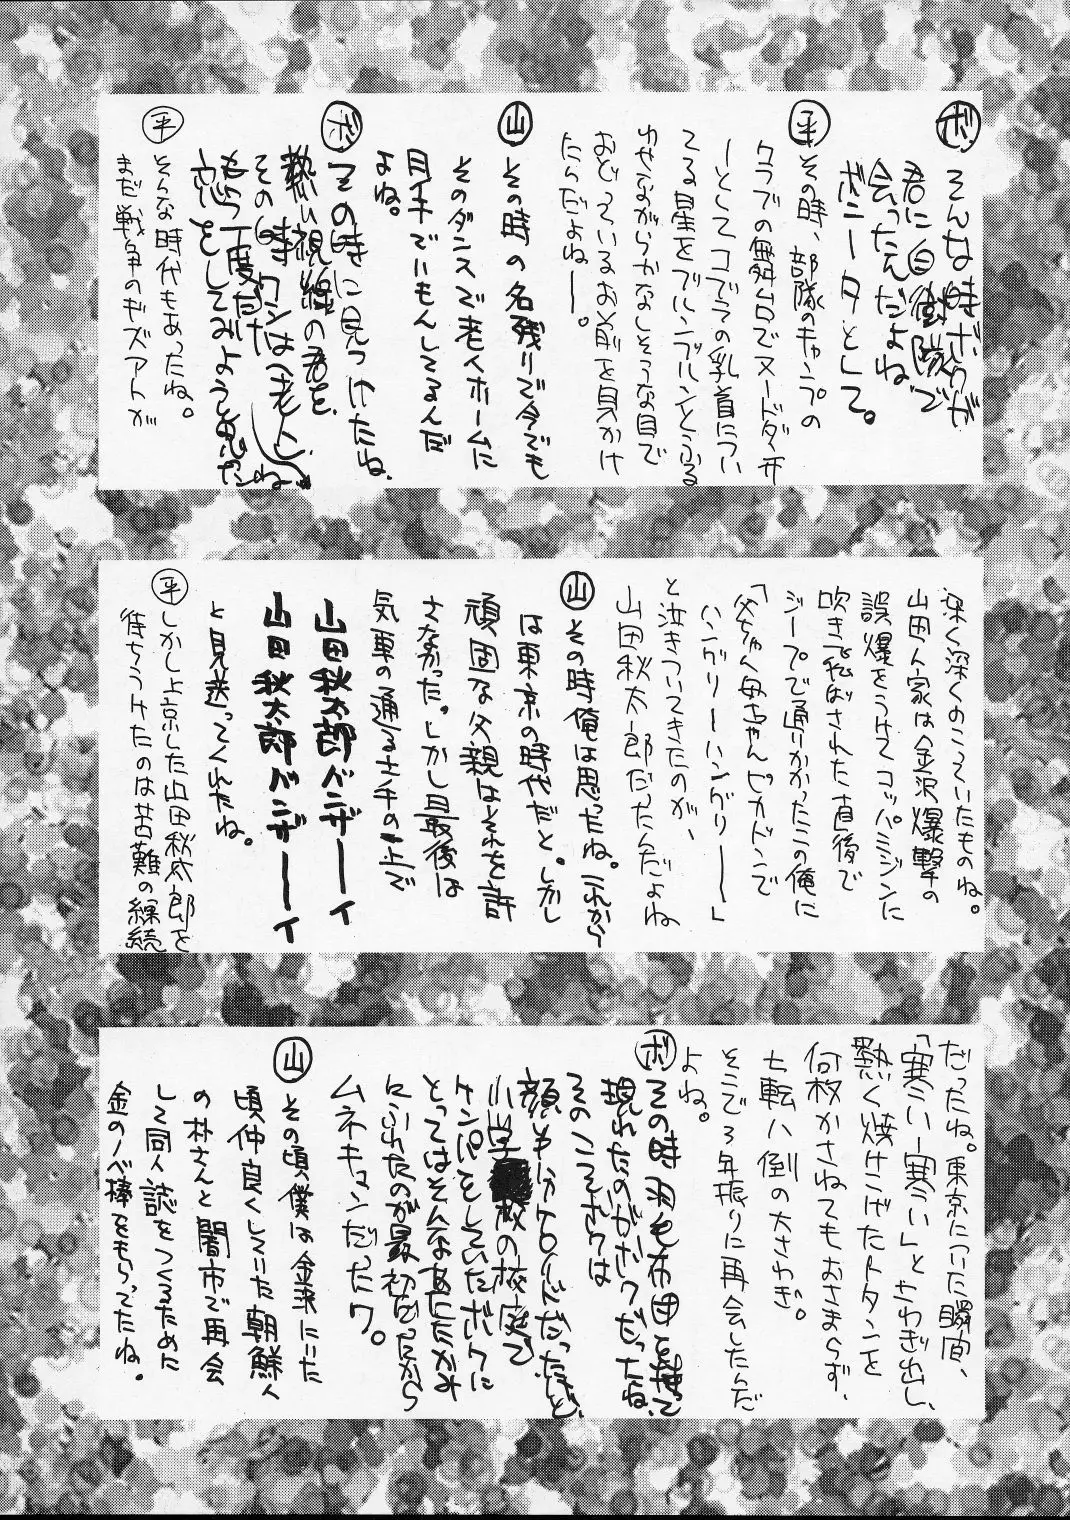 ㋭そんな時ボクが
君に自衛隊で
会ったんだよね
ボニータとして。
㊥その時、部隊のキャンプの
クラブの舞台でヌードダンサ
ーとしてコブラの乳首につい
てる星をブルンブルンとふる
わせながらかなしそうな目で
おどっているお前を見かけ
たんだよねー。
㊤その時の名残りで今でも
そのダンスで老人ホームに
目手でいもんしてるんだ
よね。
ボその時に見つけたね。
熱い視線の君を。
その時ワシはね
もう一度だけ
恋をしてみようと思った
平そんな時代もあったね。
まだ戦争のキズアトが
深く深くのこっていたものね。
山田ん家は金沢爆撃の
誤爆をうけてコッパミジンに
吹きとばされた直後で
ジープで通りかかったこの俺に
「父ちゃん母ちゃんピカドンで
ハングリーハングリー」
と泣きついてきたのが、
山田秋太郎だったんだよね
山その時俺は思ったね。これから
は東京の時代だと。しかし
頑固な父親はそれを許
さなかった。しかし最後は
気車の通る土手の上で
山田秋太郎バンザーイ
山田秋太郎バンザーイ
と見送ってくれたね。
平しかし上京した山田秋太郎を
待ちうけたのは苦難の継続
だったね。東京についた瞬間、
「寒いー寒い」とさわぎ出し、
熱く焼けこげたトタンを
何枚かさねてもおさまらず、
七転八倒の大さわぎ。
そこで3年振りに再会したんだ
よね。
ボその時羽毛布団を持って
現れたのがボクだったね、
そのころボクは
顔もハクロードだったけど、
小学校の校庭で
ケンパをしていたボクに
とってはそんなあたたかみ
にふれたのが最初だったから
ムネキュンだったワ。
山その頃、僕は金沢にいた
頃仲良くしていた朝鮮人
の朴さんと闇市で再会
して同人誌をつくるために
金のノベ棒をもらってたね。